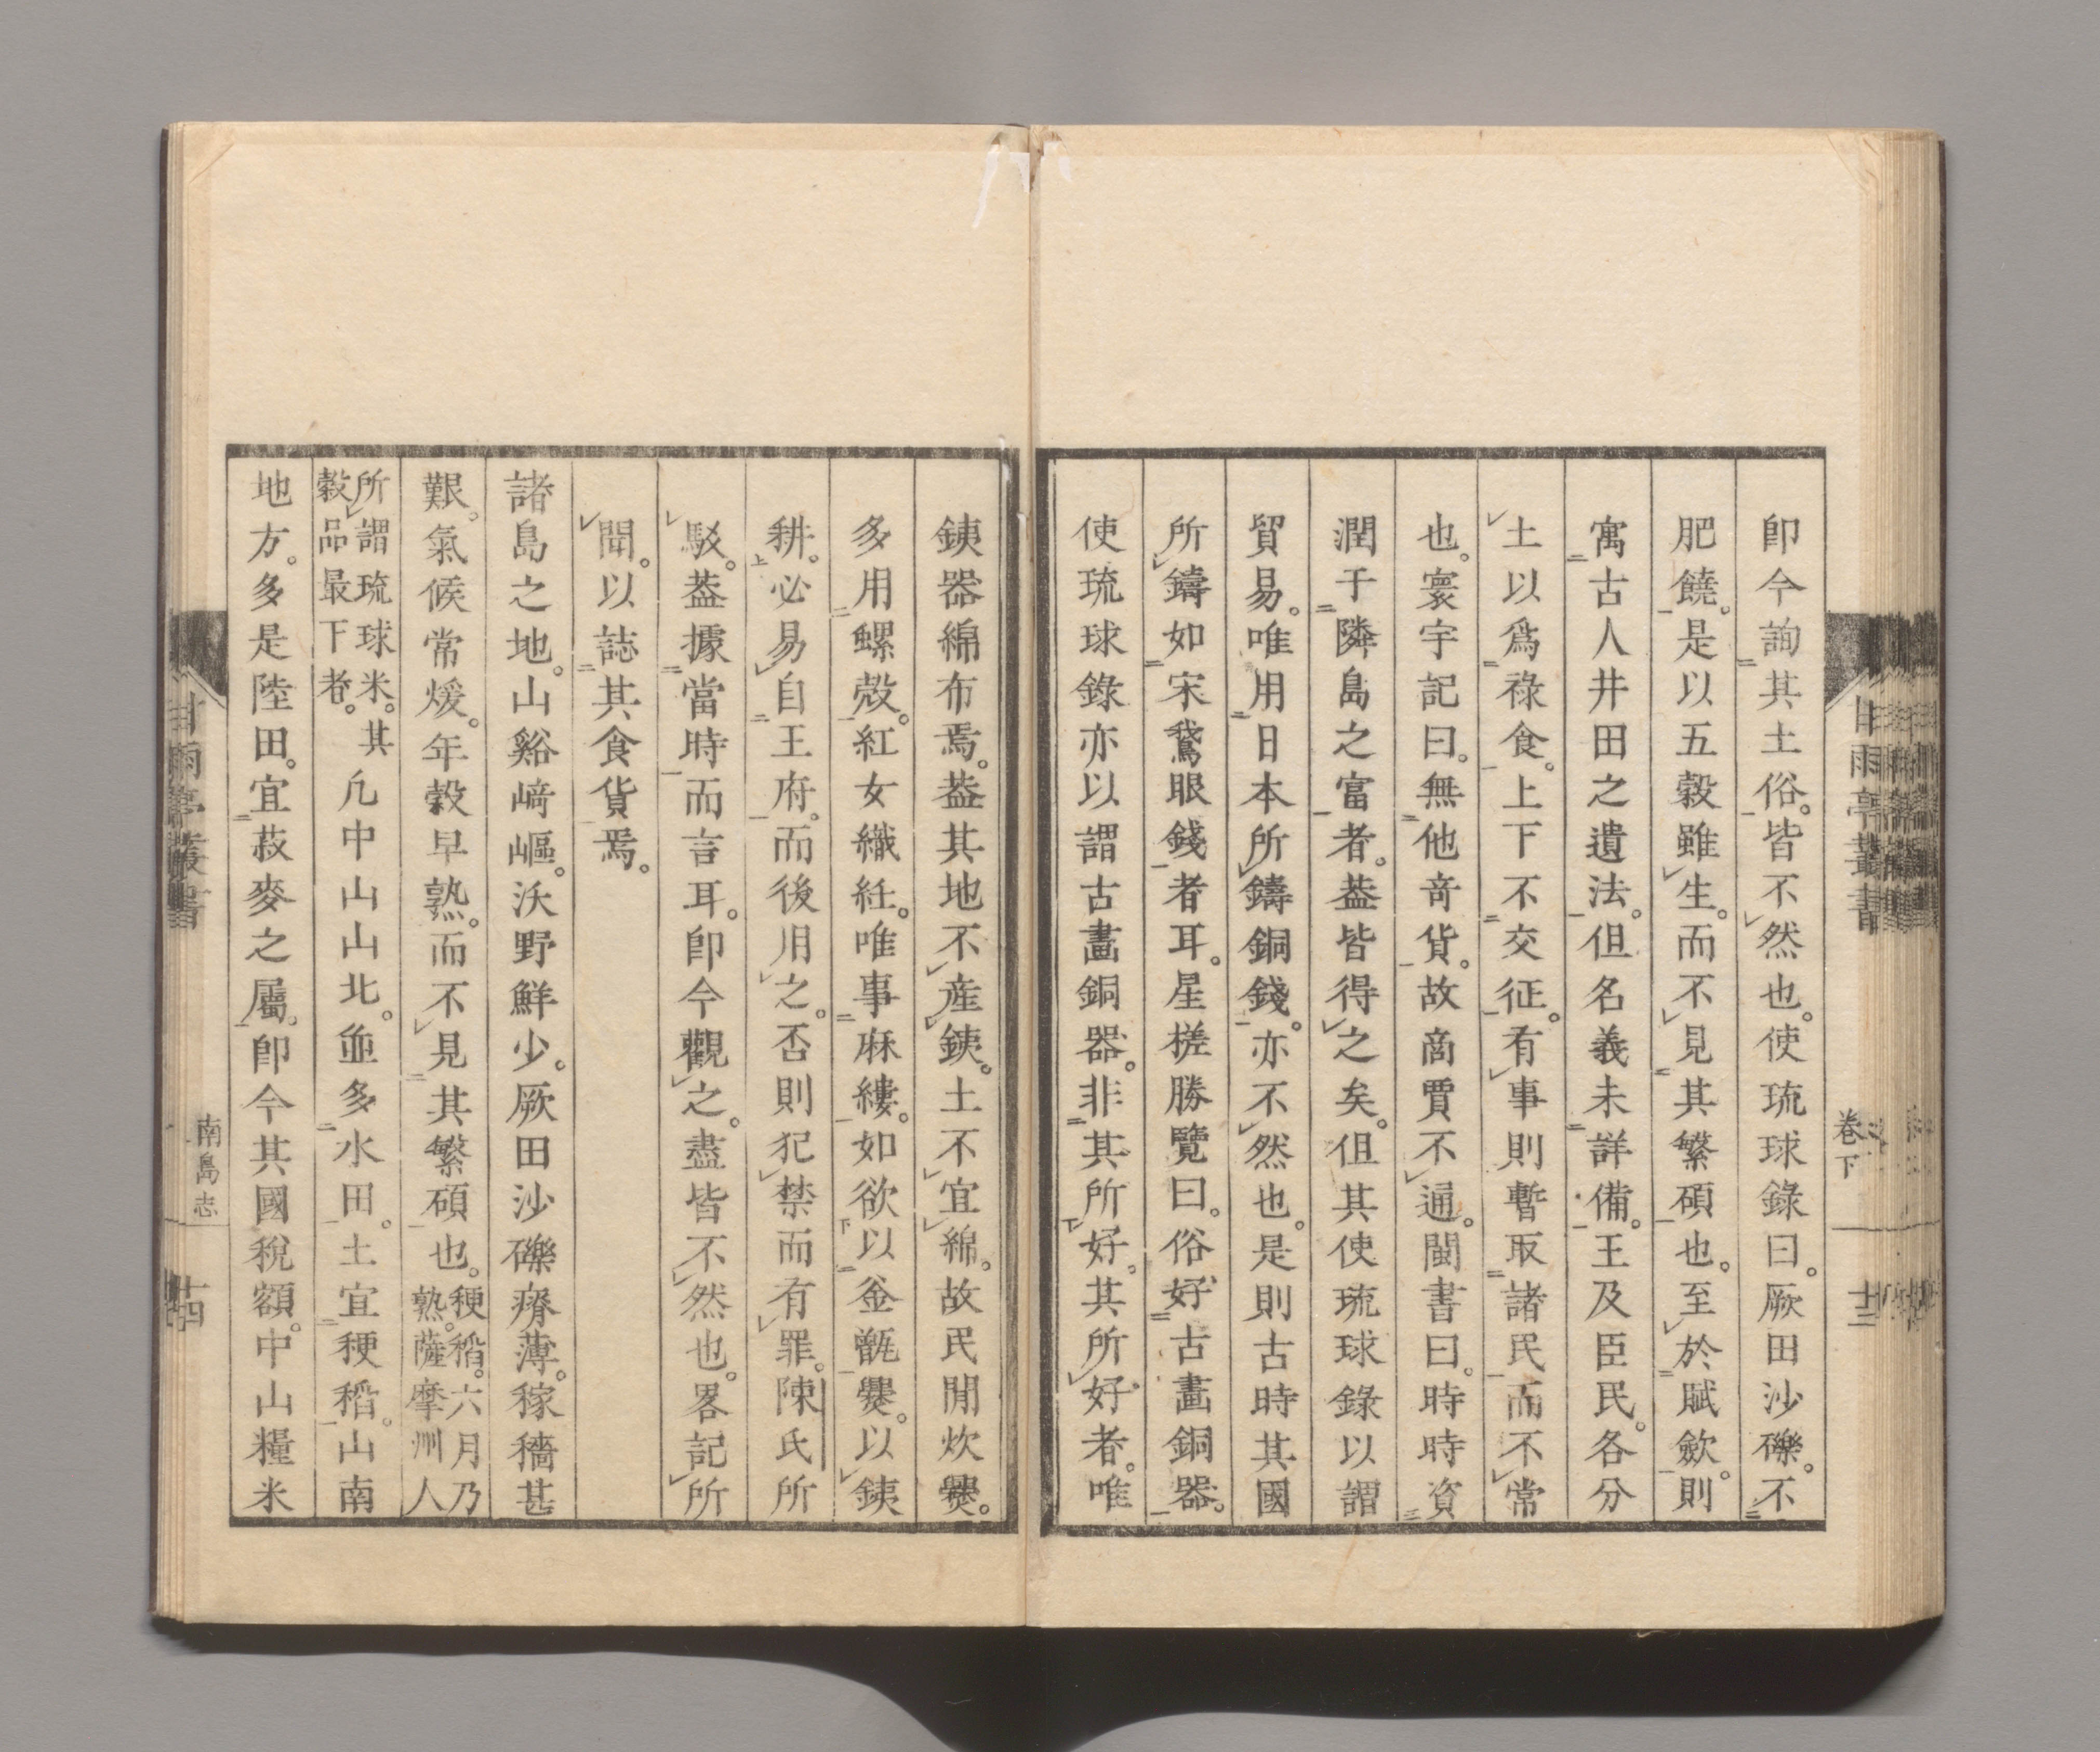 即今詢其土俗。皆不然也。使琉球錄曰。厥田沙礫。不
肥饒。是以五穀雖生。而不見其繁碩也。至於賦歛。則
寓古人井田之遺法。但名義未詳備。王及臣民。各分
土以爲祿食。上下不交征。有事則暫取諸民而不常
也。寰宇記曰。無他奇貨。故商賈不通。閩書曰。時時資
潤于隣島之富者。葢皆得之矣。但其使琉球錄以謂
貿易。唯用日本所鑄銅錢。亦不然也。是則古時其國
所鑄如宋鵞眼錢者耳。星槎勝覽曰。俗好古畫銅器。
使琉球錄亦以謂古畫銅器。非其所好。其所好者。唯
甘雨亭叢書
卷下
十三
銕器綿布焉。葢其地不産銕。土不宜綿。故民間炊爨。
多用螺殻。紅女織紝。唯事麻縷。如欲以釜甑爨。以銕
耕。必易自王府。而後用之。否則犯禁而有罪。陳氏所
駁。葢據當時而言耳。即今觀之。盡皆不然也。畧記所
聞。以誌其食貨焉。
諸島之地。山谿﨑嶇。沃野鮮少。厥田沙礫瘠薄。稼穡甚
艱。氣候常煖。年穀早熟。而不見其繁碩也。稉稻。六月乃
熟。薩摩州人
所謂琉球米。其
穀品最下者。
凢中山山北。並多水田。土宜稉稻。山南
地方。多是陸田。宜菽麥之屬。即今其國稅額。中山糧米
甘雨亭叢書
南島志
十四